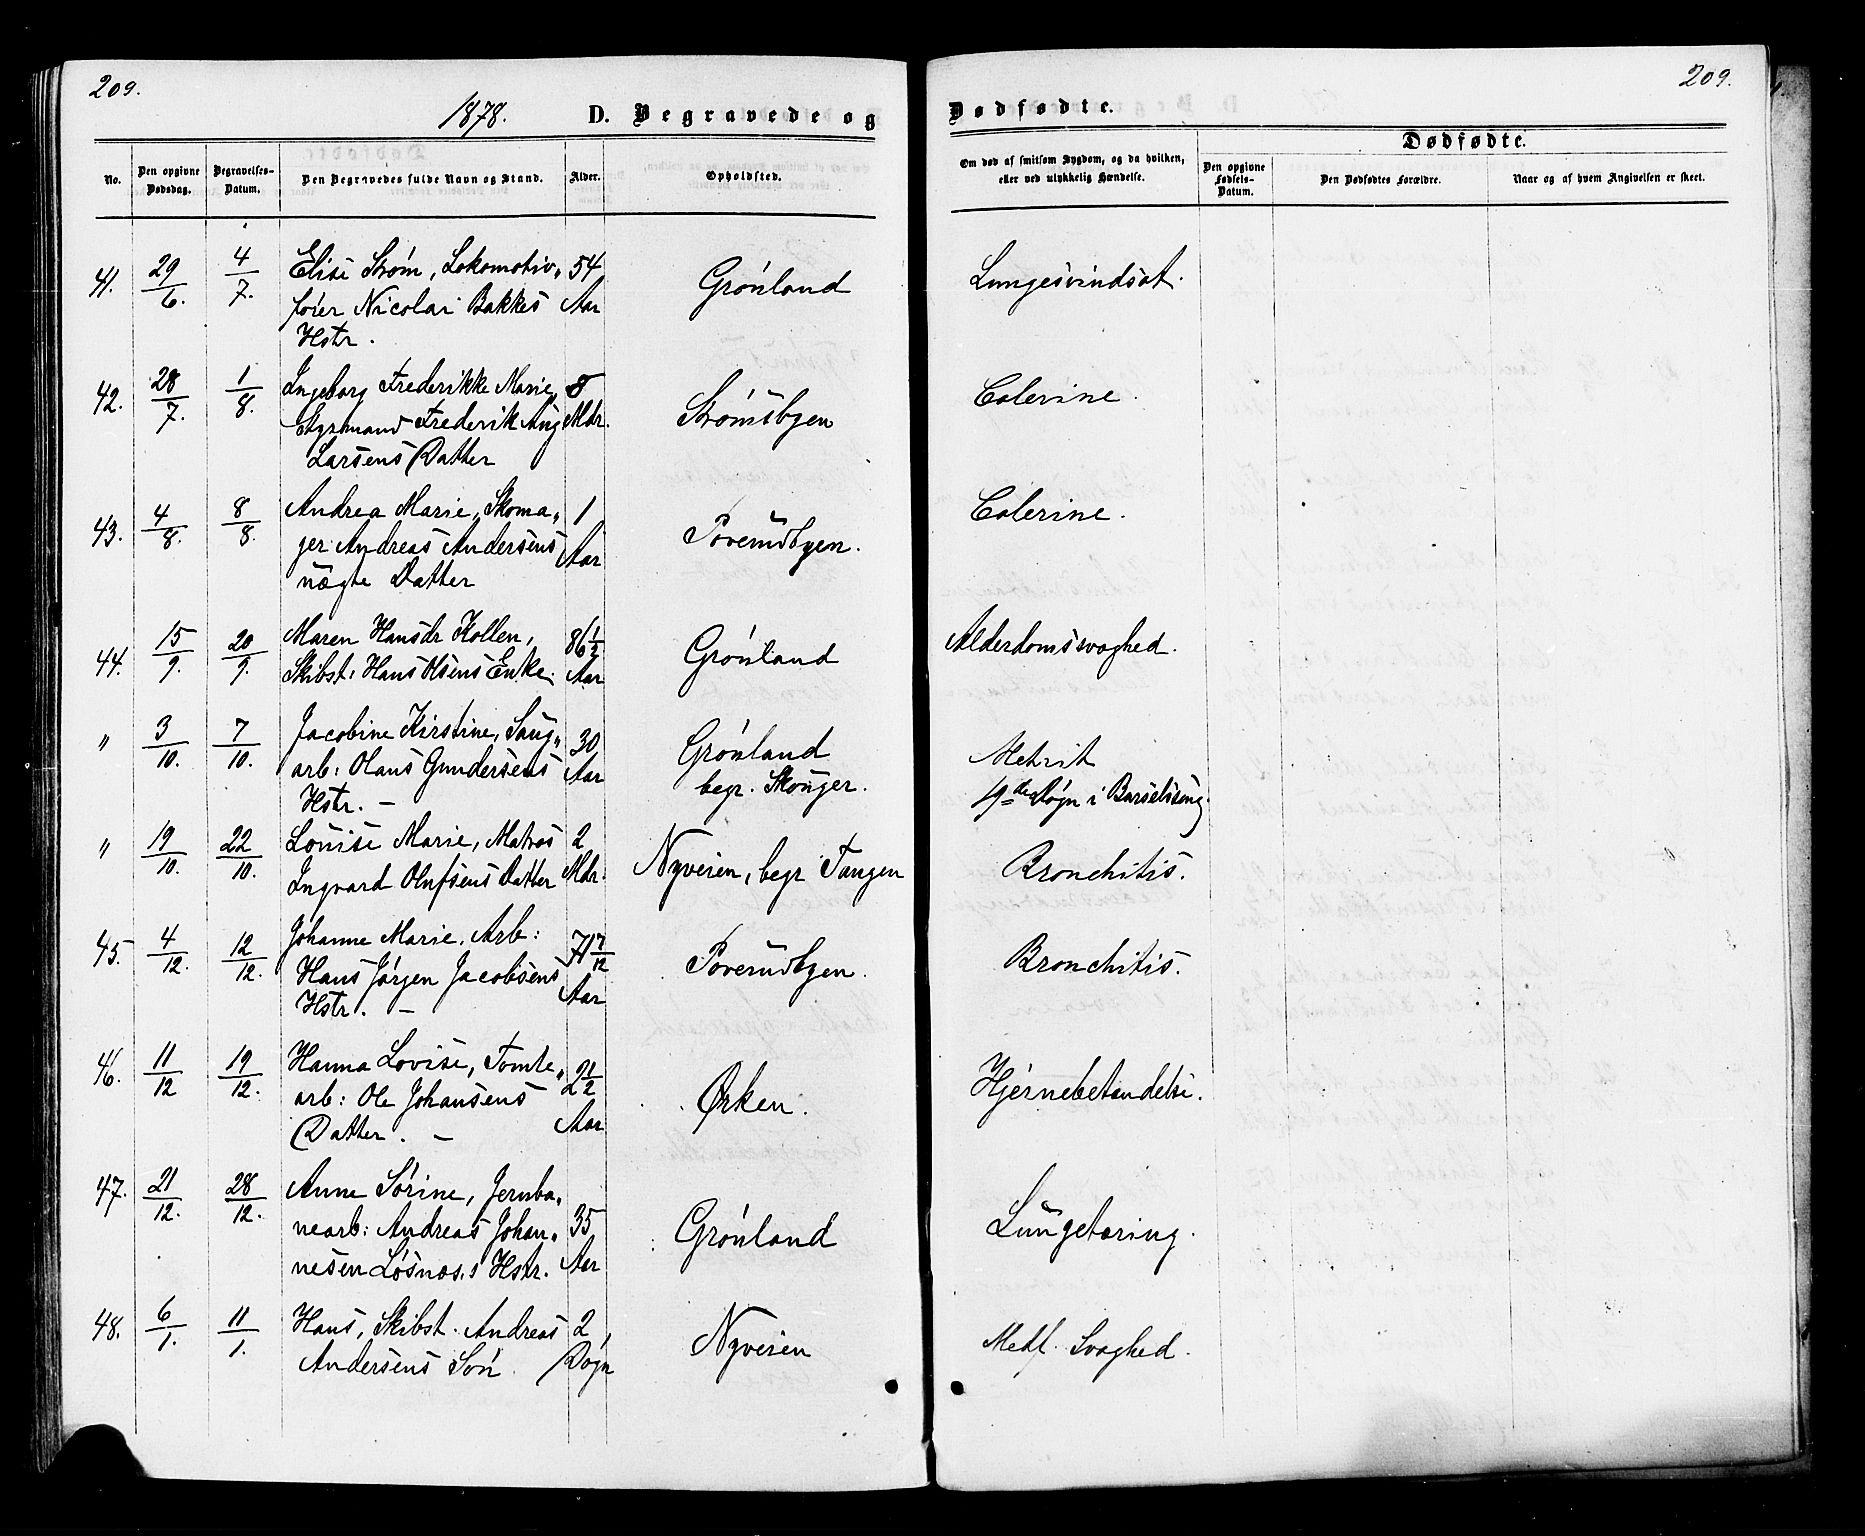 209.
209.
1878.
D. Begravede og
Dødfødte.
No.
Den opgivne Dødsdag.
Begravelses-Datum.
Den Begravedes fulde Navn og Stand.
Alder.
Opholdsted.
Om død af smitsom Sygdom, og da hvilken, eller ved ulykkelig Hændelse.
Dødfødte.
Den opgivne Fødsels-Datum.
Den Dødfødtes Forældre.
Naar og af hvem Angivelsen er skeet.
41. 29/6. 4/7. Elise Strøm, Lokomotiv„ 54 Grønland Lungesvindsot.
fører Nicolai Bakkes Aar
Hstr.
42. 28/7. 1/8. Ingeborg Frederikke Marie, 8 Strømsbyen Colerine.
Frederik Aug Mdr.
Larsens Datter
43. 4/8. 8/8. Andrea Marie, Skoma„ 1 Poverudbyen. Colerine.
ger Andreas Andersens Aar
uægte Datter
44. 15/9. 20/9. Maren Hansdr Kollen, 86 1/2 Grønland Alderdomssvaghed.
Skibst: Hans Olsens Enke. Aar
" 3/10. 7/10. Jacobine Kirstine, Saug„ 30 Grønland Metrit
arb: Olaus Gundersens Aar begr. Skouger. 19de Døgn i Barselseng.
Hstr. –
" 19/10. 22/10. Louise Marie, Matros 2 Nyveien, begr Tangen Bronchitis.
Ingvard Olufsens Datter Mdr.
45. 4/12. 12/12. Johanne Marie, Arb: 71 7/12 Poverudbyen. Bronchitis.
Hans Jørgen Jacobsens Aar
Hstr. –
46. 11/12 19/12. Hanna Lovise, Tomte„ 2 1/2 Ørken. Hjernebetændelse.
arb: Ole Johansens Aar
Datter. –
47. 21/12. 28/12. Anne Sørine, Jernba„ 35 Grønland Lungetæring.
nearb: Andreas Johan„ Aar
nesen Løsnæs.s Hstr.
48. 6/1. 11/1. Hans, Skibst. Andreas 2 Nyveien Medf. Svaghed.
Andersens Søn. Døgn